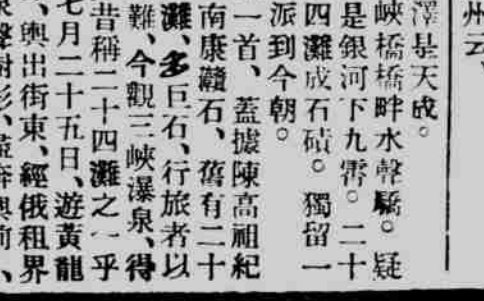 州云、
澤是天成。
峽橋橋畔水聲驕。疑
是銀河下九霄。二十
四灘成石磧。獨留一
派到今朝。
一首、蓋據陳高祖紀
南康贛石、舊有二十
灘、多巨石、行旅者以
難、今觀三峽瀑泉、得
昔稱二十四灘之一乎
七月二十五日、遊黃龍
、輿出街東、經俄租界